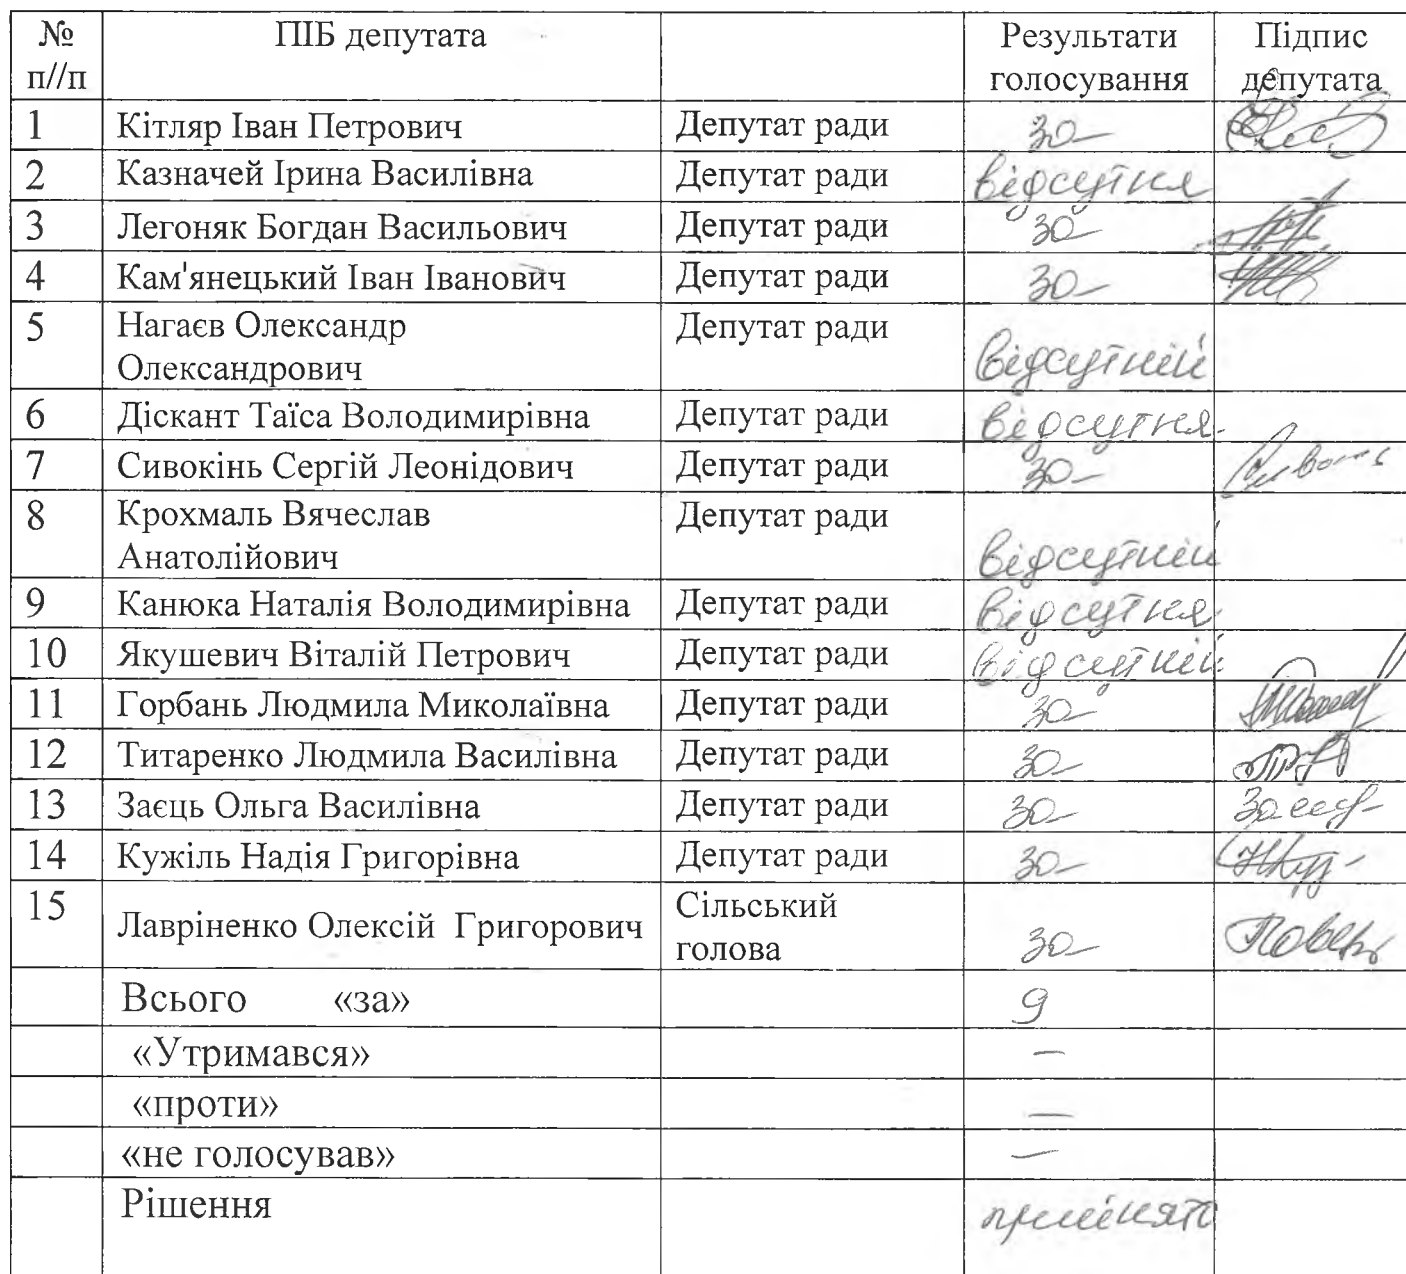 № ПІБ депутата Результати Підпис
п//п голосування депутата
1 Кітляр Іван Петрович Депутат ради за
2 Казначей Ірина Василівна Депутат ради відсутня
3 Легоняк Богдан Васильович Депутат ради за
4 Кам'янецький Іван Іванович Депутат ради за
5 Нагаєв Олександр Депутат ради
Олександрович відсутній
6 Діскант Таїса Володимирівна Депутат ради відсутня
7 Сивокінь Сергій Леонідович Депутат ради за
8 Крохмаль Вячеслав Депутат ради
Анатолійович відсутній
9 Канюка Наталія Володимирівна Депутат ради відсутня
10 Якушевич Віталій Петрович Депутат ради відсутній
11 Горбань Людмила Миколаївна Депутат ради за
12 Титаренко Людмила Василівна Депутат ради за
13 Заєць Ольга Василівна Депутат ради за
14 Кужіль Надія Григорівна Депутат ради за
15 Лавріненко Олексій Григорович Сільський
голова за
Всього «за» 9
«Утримався» —
«проти» —
«не голосував» —
Рішення прийнято